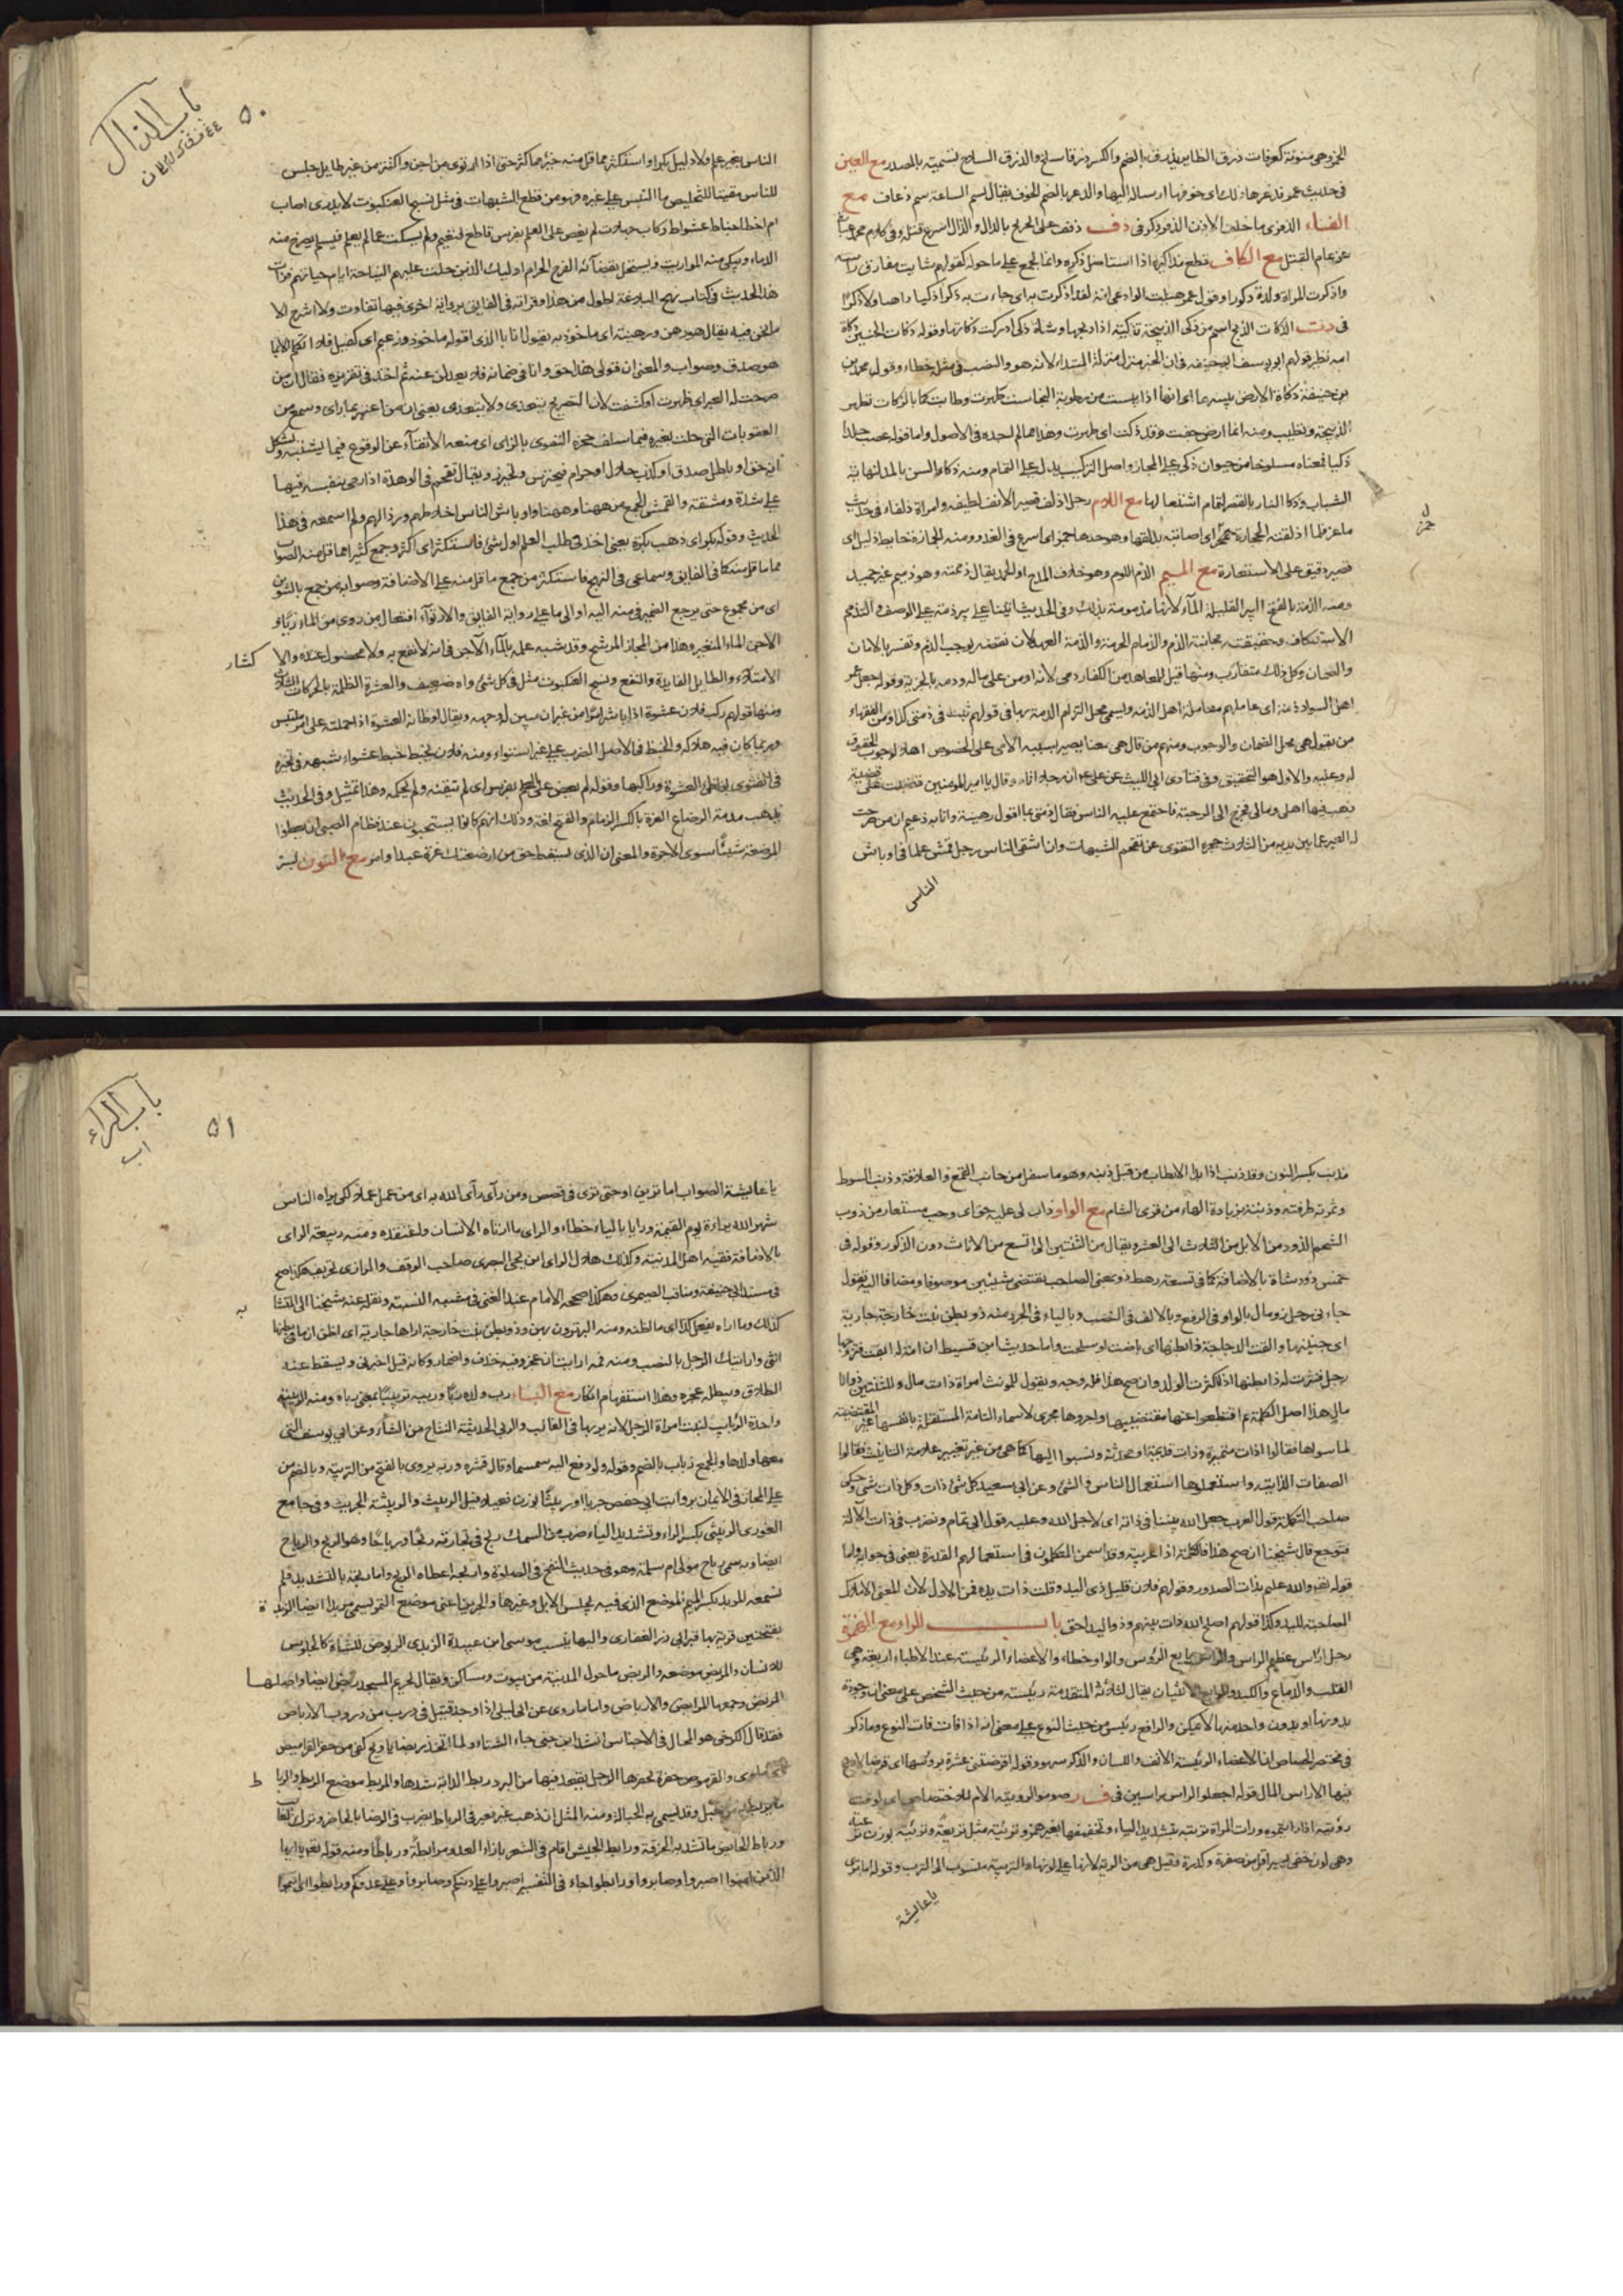 الخمر وهي منونة كعرفات ذرق الطاير يذرق بالضم والكسر ذرقا سلح والذرق السلاح تسمية بالمصدر مع العين
في حديث عمر قد ذعرها ذلك اي خوفها ارساله اليها والذعر بالضم الخوف يقال سم الساعة سم ذعاف مع
الفاء الذفرى ما خلف الاذن الذفر ذكر في دف ذفف على الجريح بالدال والذال اسرع قتله وفي كلام محمد عبارة
عن تمام القتل مع الكاف قطع مذاكيره اذا استاصل ذكره وانما الجمع على ما حوله كقولهم شابت مفارق راسه
واذكرت المراة ولدت ذكورا وقول عمر هبلت الوادعي امه لقد اذكرت به اي جاءت به ذكرا ذكيا داهيا
الذكاة الذبح اسم من ذكى الذبيحة تذكية اذا ذبحها وشاة ذكي ادركت ذكاتها وقوله ذكاة الجنين ذكاة
امه نظير قولهم ابو يوسف ابو حنيفة في ان الخبر منزل منزلة المبتداء لانه هو والنصب في مثله خطاء وقول محمد بن
الحنفية ذكاة الارض يبسها اي انها اذا يبست من رطوبة النجاسة طهرت وطابت كما بالذكاة تطهر
الذبيحة وتطيب ومنه ايما ارض جفت فقد ذكت اي طهرت وهذا مما لم اجده في الاصول واما قوله غصب جلدا
ذكيا فمعناه مسلوخا من حيوان ذكي على المجاز واصل التركيب يدل على التمام ومنه ذكاء السن بالمد لنهاية
الشباب وذكا النار بالقصر لتمام اشتعالها مع اللام رجل اذلف قصير الانف لطيفه وامراة ذلفاء في حديث
ماعز فلما اذلقته الحجارة جمز اي اصابته بذلقها وهو حدها جمز اي اسرع في العدو ومنه الجمازة حايط ذليل اي
قصير دقيق على الاستعارة مع الميم الذم اللوم وهو خلاف المدح والحمد يقال ذممته وهو ذميم غير حميد
ومنه الذمة بالفتح البير القليلة الماء لانها مذمومة بذلك وفي الحديث اتينا على بير ذمة على الوصف والتذمم
الاستنكاف وحقيقته مجانبة الذم والذمام الحرمة والذمة العهد لان نقضه يوجب الذم وتفسر بالامان
والضمان وكل ذلك متقارب ومنها قيل للمعاهد من الكفار ذمي لانه اومن على ماله ودمه بالجزية وقوله جعل عمر
اهل السواد ذمة اي عاملهم معاملة اهل الذمة ويسمى محل التزام الذمة بها في قولهم ثبت في ذمتي كذا ومن الفقهاء
من يقول هي محل الضمان والوجوب ومنهم من قال هي معنا يصير بسببه الادمي على الخصوص اهلا لوجوب الحقوق
له وعليه والاول هو التحقيق وفي فتاوى ابي الليث عن علي ان رجلا اتاه وقال يا امير المؤمنين قضيت علي قضية
ذهب فيها اهلي ومالي فخرج الى الرحبة فاجتمع عليه الناس فقال ذمتي بما اقول رهينة وانا به زعيم ان من صرحت
له العبر عما بين يديه من المثلات حجزه التقوى عن تقحم الشبهات وان اشقى الناس رجل قمش علما في اوباش
الناس
ل
جمز
باب الذال
٥٠
الناس بغير علم ولا دليل بكر واستكثر مما قل منه خير مما كثر حتى اذا ارتوى من اجن واكتنز من غير طايل جلس
للناس مفتيا لتخليص ما التبس على غيره فهو من قطع الشبهات في مثل نسج العنكبوت لا يدري اصاب
ام اخطا خباط عشوات ركاب جهالات لم يعض على العلم بضرس قاطع فيغنم ولم يسكت عما لم يعلم فيسلم يصرخ منه
الدماء وتبكي منه المواريث ويستحل بقضائه الفرج الحرام اوليك الذين حلت عليهم النياحة ايام حياتهم قرات
هذا الحديث في كتاب نهج البلاغة اطول من هذا وقراته في الفايق برواية اخرى فيها تفاوت ولا اشرح الا
ما نحن فيه يقال هو رهن ورهينة اي ماخوذ به يقول انا بالذي اقوله ماخوذ وزعيم اي كفيل فلا اتكلم الا بما
هو صدق وصواب والمعنى ان قولي هذا حق وانا في ضمانه فلا يعدلن عنه ثم اخذ في تقريره فقال ان من
صرحت له العبر اي ظهرت او كشفت لان التصريح يتعدى ولا يتعدى يعني ان من اعتبر بما راى وسمع من
العقوبات التي حلت بغيره فيما سلف حجزه التقوى بالزاي اي منعه الاتقاء عن الوقوع فيما يشتبه ويشكل
انه حق او باطل صدق او كذب حلال او حرام فيحترس ويحترز ويقال تقحم في الوهدة اذا رمى بنفسه فيها
على شدة ومشقة والقمش الجمع من ههنا وههنا واوباش الناس اخلاطهم ورذالهم ولم اسمعه في هذا
الحديث وقوله بكر اي ذهب بكرة يعني اخذ في طلب العلم اول شئ فاستكثر اي اكثر وجمع كثيرا مما قل منه الصواب
مما ما قل منه كما في الفايق وسماعي في النهج فاستكثر من جمع ما قل منه على الاضافة وصوابه من جمع بالتنوين
اي من مجموع حتى يرجع الضمير في منه اليه او الى ما على رواية الفايق والارتواء افتعال من روي من الماء ريا و
الاجن الماء المتغير وهذا من المجاز المرشح وقد شبه علمه بالماء الآجن في انه لا نفع به ولا محصول عنده والا
كتناز
الامتلاء والطايل الفايدة والنفع ونسج العنكبوت مثل في كل شئ واه ضعيف والعشوة الظلمة بالحركات الثلاث
ومنها قولهم ركب فلان عشوة اذا باشر امرا من غير ان يبين له وجهه ويقال اوطاته العشوة اذا حملته على امر ملتبس
وربما كان فيه هلاكه والخبط في الاصل الضرب على غير استواء ومنه فلان يخبط خبط عشواء شبهه في تحيره
في الفتوى بواطئ العشوة وراكبها وقوله لم يعض على العلم بضرس اي لم يتقنه ولم يحكمه وهذا تمثيل وفي الحديث
يذهب مذمة الرضاع الغرة بالكسر الذمام والفتح لغة وذلك انهم كانوا يستحبون عند فطام الصبي ان يعطوا
المرضعة شيئا سوى الاجرة والمعنى ان الذي يسقط حق من ارضعتك غرة عبد او امة مع النون بسر
مذنب بكسر النون وقد ذنب اذا بدا الارطاب من قبل ذنبه وهو ما سفل من جانب القمع والعلاقة وذنب السوط
وثمرته طرفه وذنبة بزيادة الهاء من قرى الشام مع الواو ذاب لي عليه حق اي وجب مستعار من ذوب
الشحم الذود من الابل من الثلاث الى العشر يقال من الثنتين الى التسع من الاناث دون الذكور وقوله في
خمس ذود شاة بالاضافة كما في تسعة رهط ذو بمعنى الصاحب يقتضي شيئين موصوفا ومضافا اليه تقول
جاءني رجل ذو مال بالواو في الرفع وبالالف في النصب وبالياء في الجر ومنه ذو بطن بنت خارجة جارية
اي جنينها والقت الدجاجة ذا بطنها اي باضت او سلحت واما حديث ابن قسيط ان امة له ابقت فتزوجها
رجل فنثرت له ذا بطنها اذا كثرت الولد وان صح هذا فله وجه وتقول للمونث امراة ذات مال وللثنتين ذواتا
مال هذا اصل الكلمة ثم اقتطعوا عنها مقتضييها واجروها مجرى الاسماء التامة المستقلة بانفسها غير المقتضية
لما سواها فقالوا ذات متميزة وذات قديمة او محدثة ونسبوا اليها كما هي من غير تغيير علامة التانيث فقالوا
الصفات الذاتية واستعملوها استعمال النفس والشئ وعن ابي سعيد كل شئ ذات وكل ذات شئ وحكى
صاحب التكملة قول العرب جعل الله بيننا في ذاته اي لاجل الله وعليه قول ابي تمام ويضرب في ذات الآلة
فتوجع قال شيخنا ان صح هذا فالكلمة اذا عربية وقد اسمن المتكلمون في استعمالهم القدرة يعني في جوابه واما
قوله تعالى والله عليم بذات الصدور وقولهم فلان قليل ذي اليد وقلت ذات يده فمن الاول لان المعنى الاملاك
المصاحبة لليد وكذا قولهم اصلح الله ذات بينهم وذو اليد احق باب الراء مع الهمزة
رجل ارأس عظيم الراس والرأاس بايع الرؤس والواو خطاء والاعضاء الرئيسة عند الاطباء اربعة وهي
القلب والدماغ والكبد والرابع الانثيان يقال للثلاثة المتقدمة رئيسة من حيث الشخص على معنى ان وجوده
بدونها او بدون واحد منها لا يمكن والرابع رئيس من حيث النوع على معنى انه اذا فات فات النوع وما ذكر
في مختصر الجصاص ان الاعضاء الرئيسة الانف واللسان والذكر سهو وقوله اقرضتني عشرة بروسها اي قرضا لا ربح
فيها الا راس المال قوله اجعلوا الراس راسين في صوموا لرويته اللام للاختصاص اي لوقت
رؤيته اذا رايتموه ورات المراة ترية بتشديد الياء وتخفيفها بغير همز وترئية مثل تربعة وترئية بوزن ترعية
وهي لون خفي يسير اقل من صفرة وكدرة وقيل هي من الرئة لانها على لونها والتربية منسوب الى الترب وقوله اما ترى
يا عايشة
باب الراء
اب
٥١
يا عايشة الصواب اما ترين او حتى تري في قصص ومن رآى رآى الله به اي من عمل عملا لكي يراه الناس
شهر الله رياءه يوم القيمة ورايا بالياء خطاء والراى ما ارتاه الانسان واعتقده ومنه ربيعة الراي
بالاضافة فقيه اهل المدينة وكذلك هلال الراي ابن يحيى البصري صاحب الوقف والرازي تحريف هكذا صح
في مسند ابي حنيفة ومناقب الصيمري وهكذا صححه الامام عبد الغني في مشتبه النسبة ونقله عنه شيخنا الى المتشا
به
كذلك وما اراه يفعل كذا اي ما اظنه ومنه البر ترون بهن وذو بطن بنت خارجة اراها جارية اي اظن ان ما في بطنها
انثى وارايتك الرجل بالنصب ومنه قمه ارايت ان عجز وفيه حذف واضمار وكانه قيل اخبرني ويسقط عنه
الطلاق ويبطله عجزه وهذا استفهام انكار مع الباء رب ولده ربا وربيه تربيبا بمعنى رباه ومنه الربيبة
واحدة الربايب لبنت امراة الرجل لانه يربها في الغالب والربى الحديثة النتاج من الشاء وعن ابي يوسف التي
معها ولدها والجمع رباب بالضم وقوله ولو دفع اليه سمسما وقال قشره وربه يروى بالفتح من التربية وبالضم من
على المجاز في الايمان برواية ابي حفص جريثا او ربيثا بوزن فعيلا وقيل الربيث والربيثة الجريث وفي جامع
الغوري الربيثى بكسر الراء وتشديد الباء ضرب من السمك ربح في تجارته ربحا ورباحا وهو الربح والرباح
ايضا وبه سمي رباح مولى ام سلمة وهو في حديث النفخ في الصلوة وارابحه اعطاه الربح واما ربحه بالتشديد فلم
نسمعه المربد بكسر الميم الموضع الذي فيه يحبس الابل وغيرها والجرين اعني موضع التمر يسمى مربدا ايضا الربذ
ة
بفتحتين قرية بها قبر ابي ذر الغفاري واليها ينسب موسى ابن عبيدة الزبدي الربوض للشاة كالجلوس
للانسان والمربض موضعه والربض ما حول المدينة من بيوت ومساكن ويقال لحريم المسجد ربض ايضا واصلها
المربض وجمعها المرابض والارباض واما ما روي عن ابي ليلى اذا وجد قتيل في درب من دروب الارباض
فقد قال الكرخي هو المحال في الاجناس انشد ابن جني جاء الشتاء ولما اتخذ ربضا يا ويح كفي من حفر القراميص
والقرموص حفرة يحفرها الرجل يقعد فيها من البرد ربط الدابة شدها والمربط موضع الربط والربا
ط
ما يربط به من حبل وقد يسمى به الحبالة ومنه المثل ان ذهب عير فعير في الرباط يضرب في الرضا بالحاضر وترك الغايب
ورباط الحايض ما تشد به الخرقة ورابط الجيش اقام في الثغر بازاء العدو مرابطة ورباطا ومنه قوله تعالى يا ايها
الذين امنوا اصبروا وصابروا ورابطوا جاء في التفسير اصبروا على دينكم وصابروا على عدوكم ورابطوا اي اقيموا